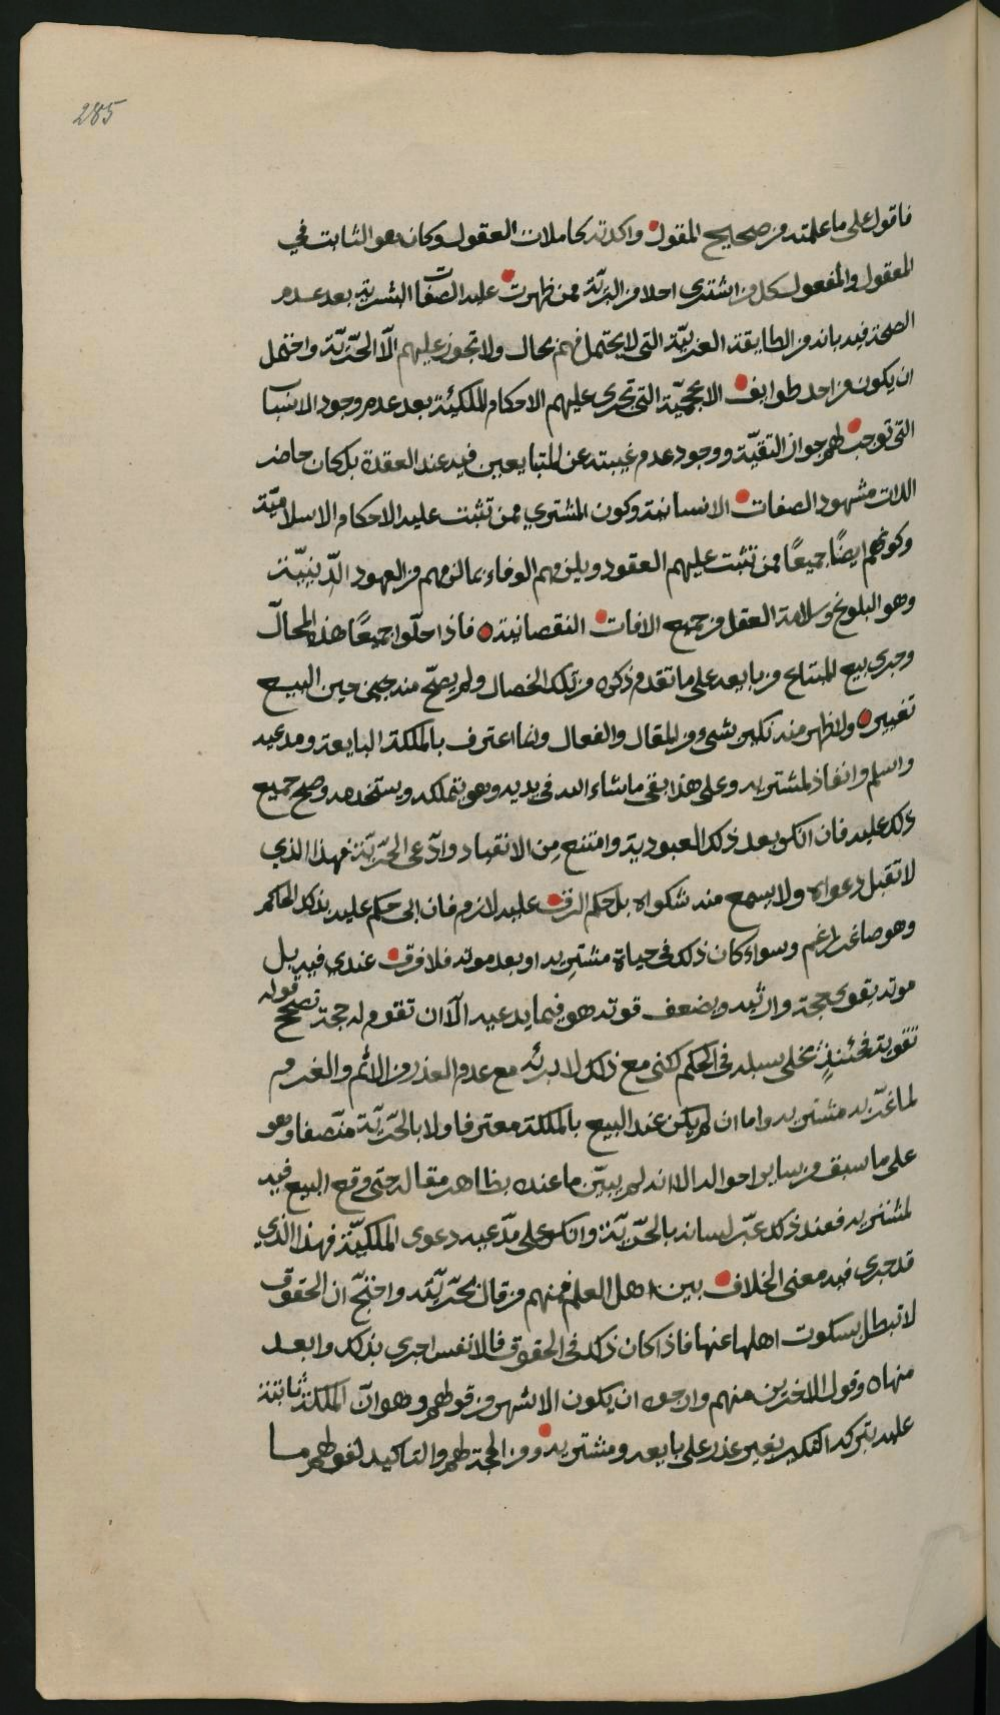 285
فاقول على ما علمته من صحايح المقول واكدته كاملات العقول وكان هو الثابت في
المعقول والمفعول لكل من اشترى احدا من البريّة ممن ظهرت عليه الصفات البشرية بعد عدم
الصحة فيه بانه من الطايفة العربيّة التي لا يحتمل فيهم بحال ولا تجوز عليهم الّا الحرّيّة واحتمل
ان يكون من احد طوايف الاعجميّة التي تجري عليهم الاحكام الملكيّة بعد عدم وجود الاسباب
التي توجب لهم جواز التقيّة ووجود عدم غيبته عن المتبايعين فيه عند العقدة بل كان حاضر
الذات مشهود الصفات الانسانية وكون المشتري ممن تثبت عليه الاحكام الاسلاميّة
وكونهم ايضًا جميعًا ممن تثبت عليهم العقود ويلزمهم الوفاء بما لزمهم من العهود الدّينيّة
وهو البلوغ وسلامة العقل من جميع الافات النقصانية فاذا حلّوا جميعًا هذا المحالّ
وجرى بيع المبتاع من بايعه على ما تقدم ذكره من تلك الخصال ولم يصحّ منه حين البيع
تغيير ولا ظهر منه نكير بشيء من المقال والفعال وانما اعترف بالملكة لبايعه ومدعيه
واسلم وانفاذ لمشتريه وعلى هذا بقي ما شاء الله في يديه وهو يتملكه ويستخدمه وصح جميع
ذلك عليه فان انكر بعد ذلك العبودية وامتنع من الانقياد وادّعى الحرّيّة فهذا الذي
لا تقبل دعواه ولا يسمع منه شكواه بل حكم الرق عليه لازم فان ابى حكم عليه بذلك الحاكم
وهو صاغر راغم وسواء كان ذلك في حياة مشتريه او بعد موته فلا فرق عندي فيه بل
موته يقوي حجة وارثيه ويضعف قوته هو فيما يدعيه الّا ان تقوم له حجة تصحح قوله
تقويه فحينئذٍ يخلى سبيله في الحكم لكني مع ذلك لا ابرئه مع عدم العذر من الاثم والغرم
لما غرّ به مشتريه واما ان لم يكن عند البيع بالملكة معترفا ولا بالحرّيّة متّصفا وهو
على ما سبق من ساير احواله الا انه لم يبيّن ما عنده بظاهر مقاله حتى وقع البيع فيه
لمشتريه فعند ذلك عبّر لسانه بالحرّيّة وانكر على مدّعيه دعوى الملكيّة فهذا الذي
قد جرى فيه معنى الخلاف بين اهل العلم فمنهم من قال بحرّيّته واحتجّ ان الحقوق
لا تبطل بسكوت اهلها عنها فاذا كان ذلك في الحقوق فالانفس احرى بذلك وابعد
منها وقول اللاخرين منهم وارجوه ان يكون الاشهر من قولهم وهو انّ الملكة ثابتة
عليه بتركه النكير بغير عذر على بايعه ومشتريه ومن الحجة لهم والتاكيد لقولهم ما